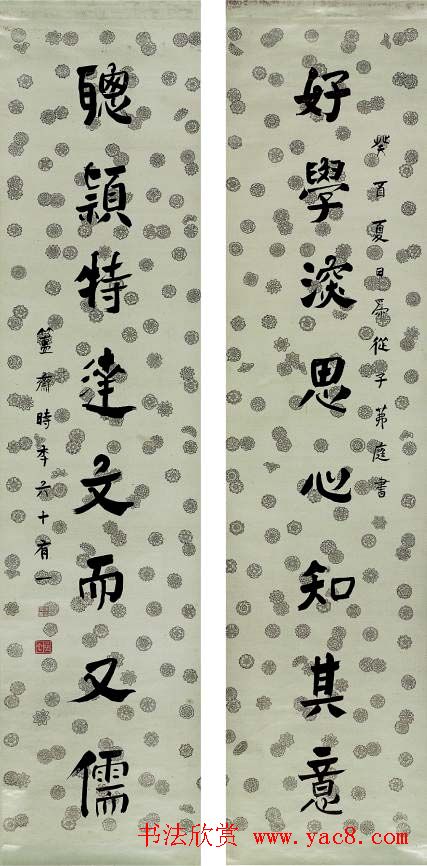 癸酉夏日爲從子茀庭書
好學深思心知其意
聰穎特達文而又儒
簠齋時年六十有一
书法欣赏 www.yac8.com